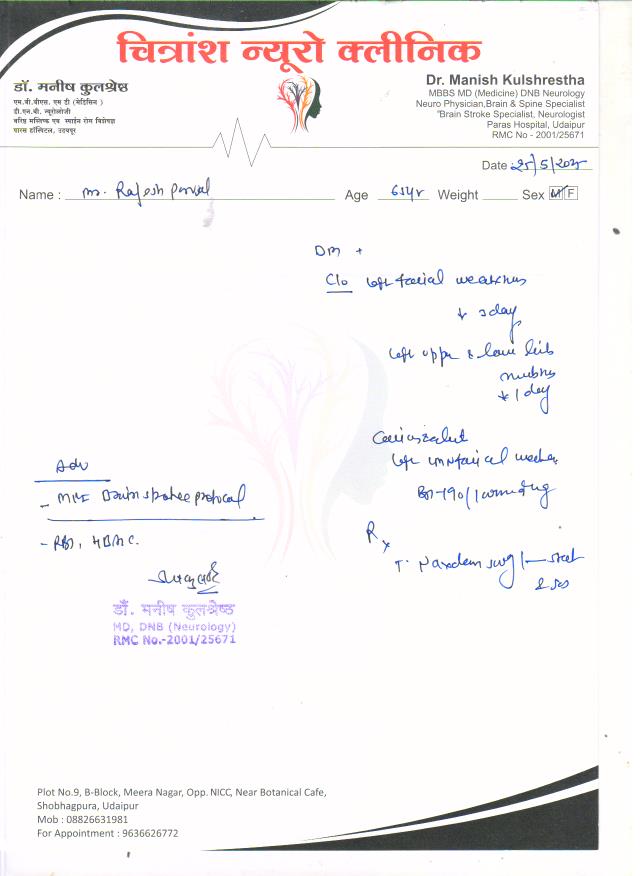 चित्रांश न्यूरो क्लीनिक
डॉ. मनीष कुलश्रेष्ठ
एम.बी.बीएस. एम डी (मेडिसिन)
डी.एन.बी. न्यूरोलोजी
वरिष्ठ मस्तिष्क एवं स्पाईन रोग विशेषज्ञ
पारस हॉस्पिटल, उदयपुर
Dr. Manish Kulshrestha
MBBS MD (Medicine) DNB Neurology
Neuro Physician,Brain & Spine Specialist
"Brain Stroke Specialist, Neurologist
Paras Hospital, Udaipur
RMC No - 2001/25671
Date 25/5/2025
Name : Mr. Rajesh Age 65yr Weight Sex M F
DM +
C/o left facial weakness
3 day
left upper & lower limb
1 day
left facial
BP-190/
Adv
- MRI Brain stroke protocol
- RBS,
Rx
T.
डॉ. मनीष कुलश्रेष्ठ
MD, DNB (Neurology)
RMC No.-2001/25671
Plot No.9, B-Block, Meera Nagar, Opp. NICC, Near Botanical Cafe,
Shobhagpura, Udaipur
Mob : 08826631981
For Appointment : 9636626772